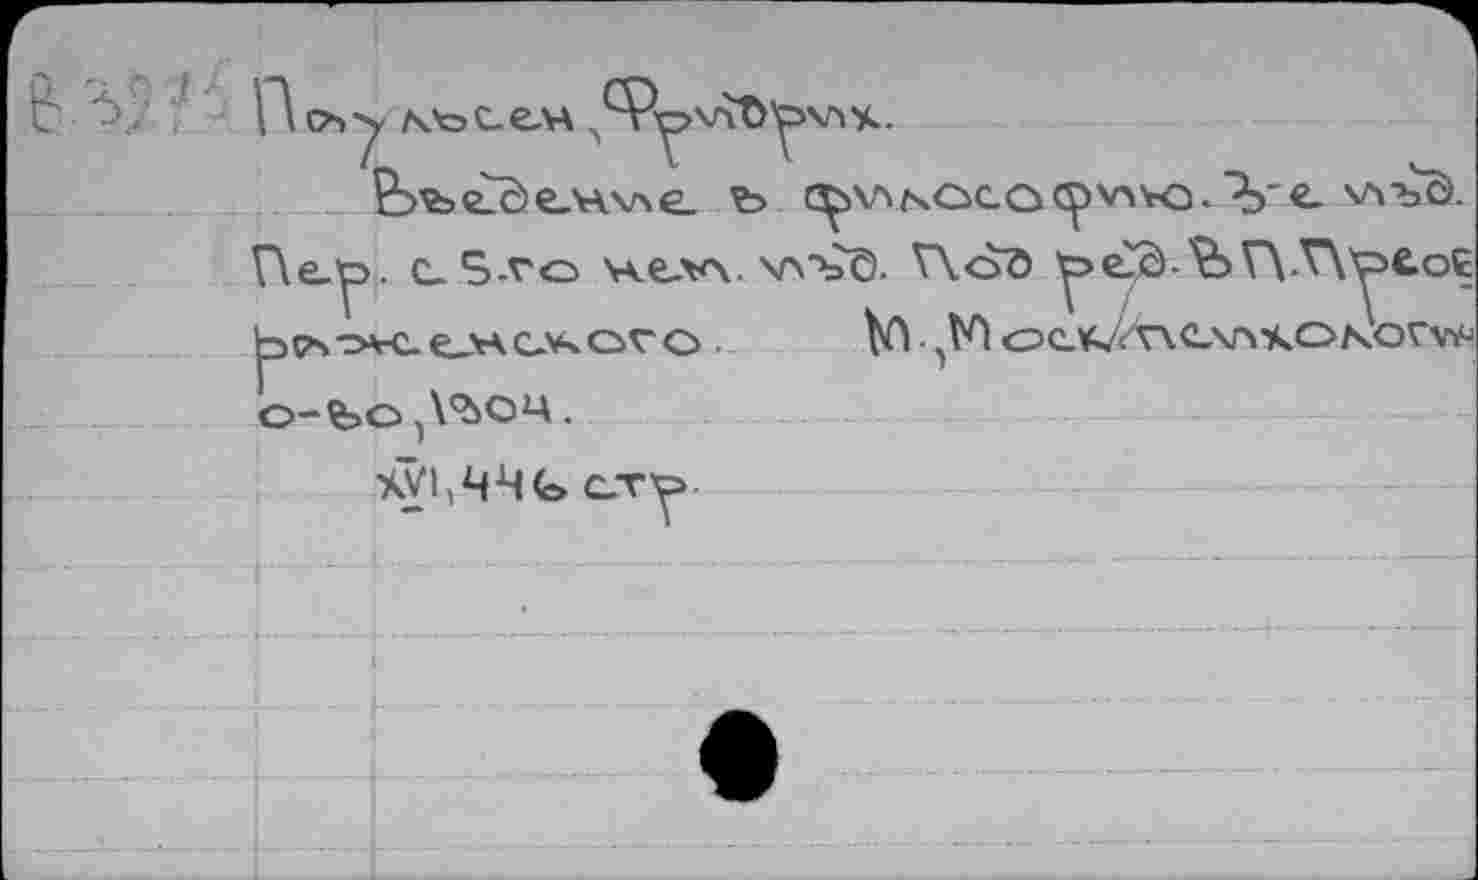 Паульсен, Фридрих.
Введение в философию. 3-е изд.
Пер. с 5-го нем. изд. Под ред. В П. Преоб
раженского. М., Моск. психологич.
о-во, 1904.
XVI, 446 стр.